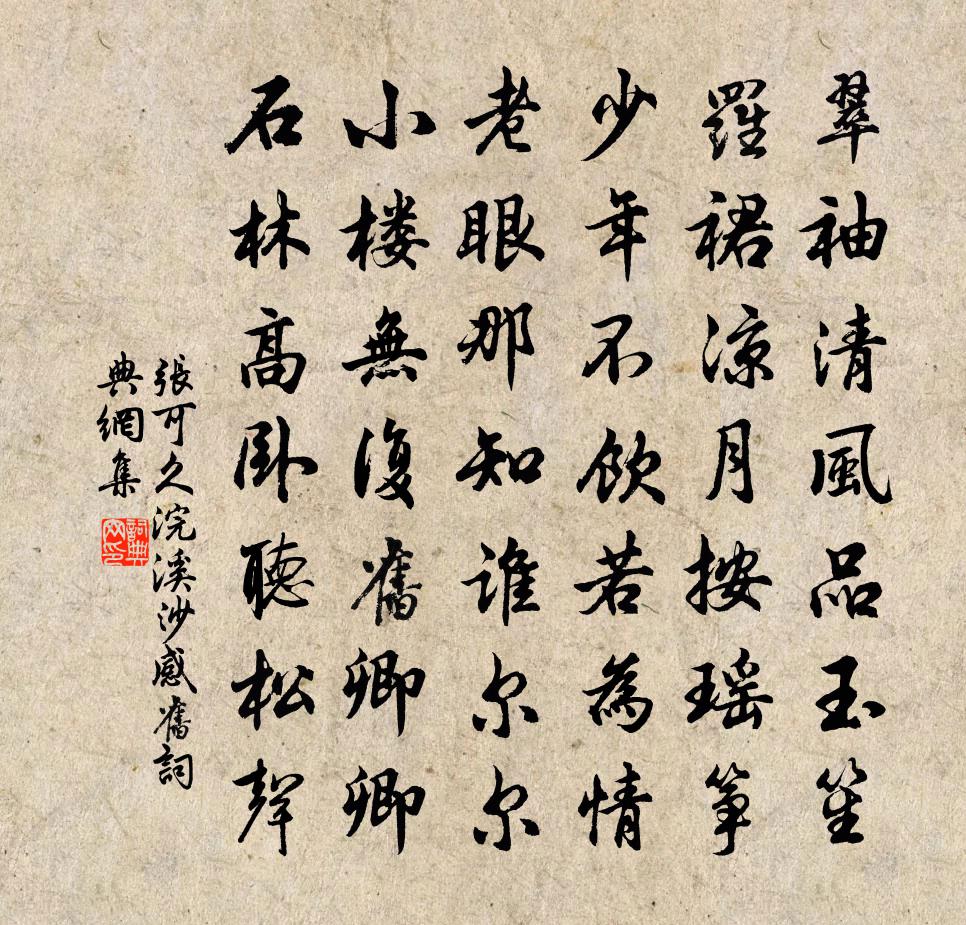 翠袖清風品玉笙
羅裙涼月按瑶筝
少年不飲若為情
老眼那知谁尔尔
小楼無復舊卿卿
石林高卧聽松聲
張可久浣溪沙感舊詞
典網集
詞典网印